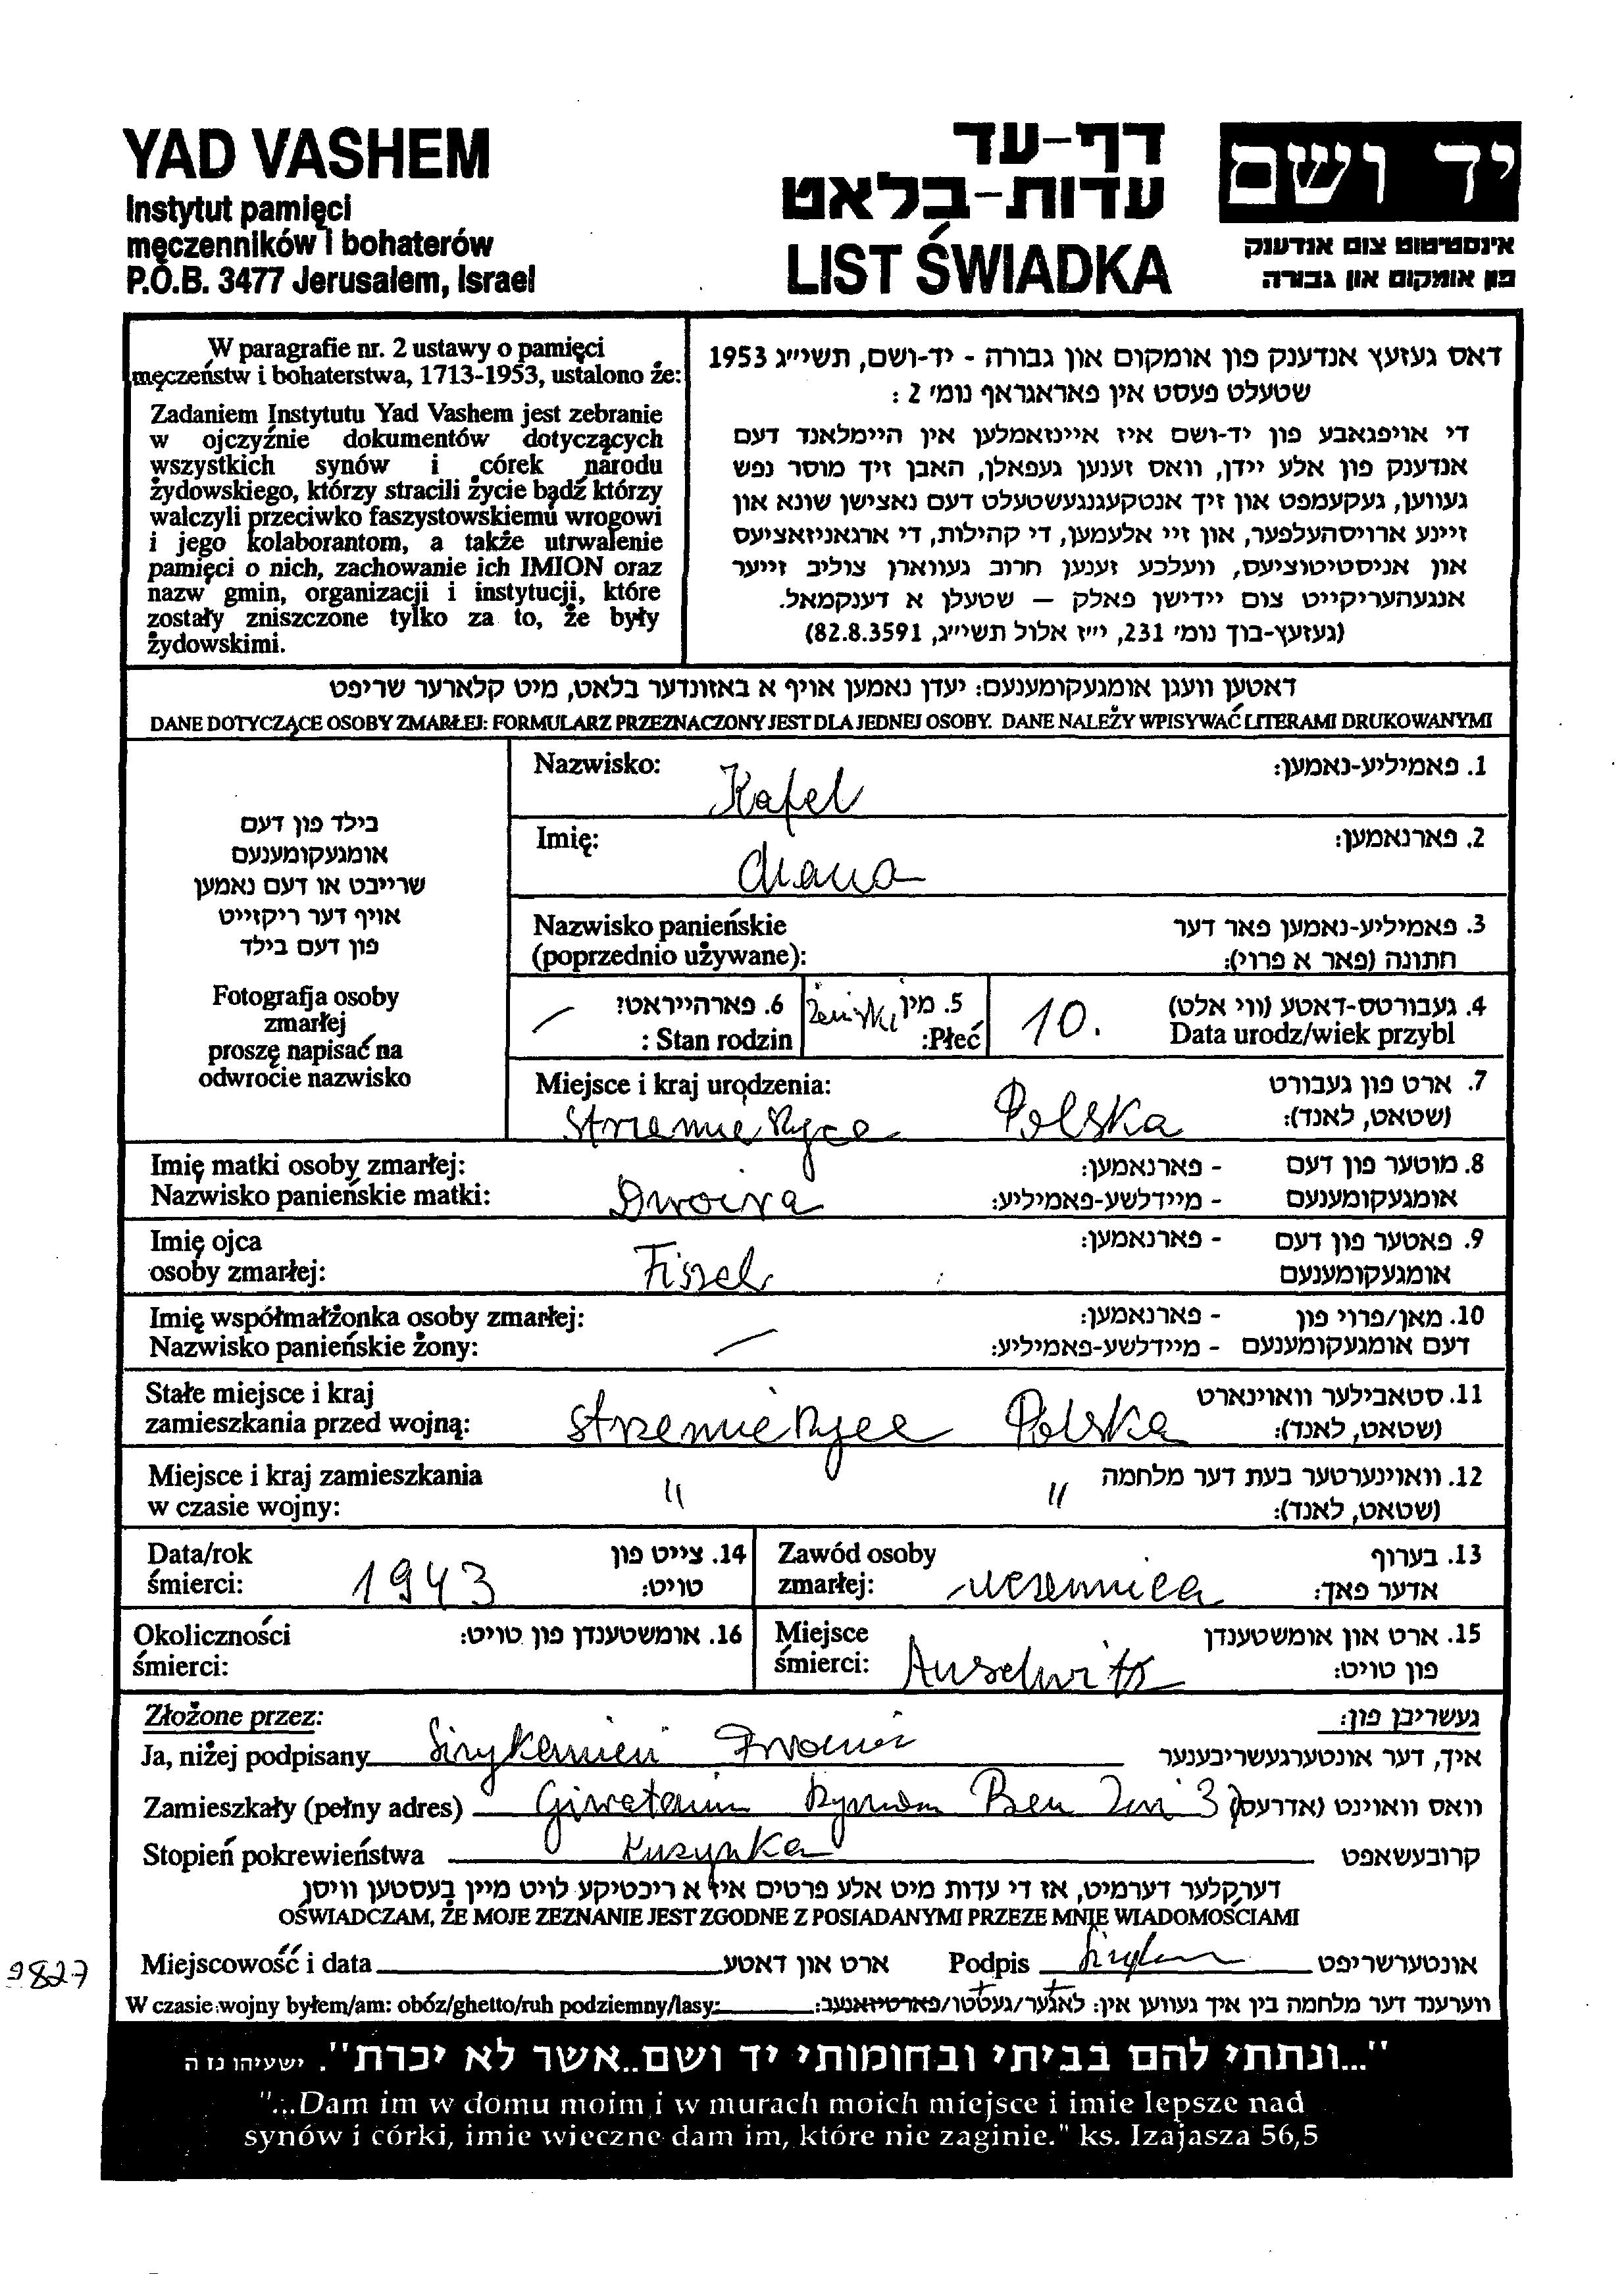 YAD VASHEM
Instytut pamięci
męczenników i bohaterów
P.O.B. 3477 Jerusalem, Israel
דף-עד
עדות-בלאט
LIST ŚWIADKA
יד ושם
אינסטיטוט צום אנדענק
פון אומקום און גבורה
W paragrafie nr. 2 ustawy o pamięci
męczeństw i bohaterstwa, 1713-1953, ustalono że:
Zadaniem Instytutu Yad Vashem jest zebranie
w ojczyźnie dokumentów dotyczących
wszystkich synów i córek narodu
żydowskiego, którzy stracili życie bądź którzy
walczyli przeciwko faszystowskiemu wrogowi
i jego kolaborantom, a także utrwalenie
pamięci o nich, zachowanie ich IMION oraz
nazw gmin, organizacji i instytucji, które
zostały zniszczone tylko za to, że były
żydowskimi.
דאס געזעץ אנדענק פון אומקום און גבורה - יד-ושם, תשי״ג 1953
שטעלט פעסט אין פאראגראף נומ׳ 2 :
די אויפגאבע פון יד-ושם איז איינזאמלען אין היימלאנד דעם
אנדענק פון אלע יידן, וואס זענען געפאלן, האבן זיך מוסר נפש
געווען, געקעמפט און זיך אנטקעגנגעשטעלט דעם נאצישן שונא און
זיינע ארויסהעלפער, און זיי אלעמען, די קהילות, די ארגאניזאציעס
און אניסטיטוציעס, וועלכע זענען חרוב געווארן צוליב זייער
אנגעהעריקייט צום יידישן פאלק – שטעלן א דענקמאל.
(געזעץ-בוך נומ׳ 231, י״ז אלול תשי״ג, 82.8.3591)
דאטען וועגן אומגעקומענעם: יעדן נאמען אויף א באזונדער בלאט, מיט קלארער שריפט
DANE DOTYCZĄCE OSOBY ZMARŁEJ: FORMULARZ PRZEZNACZONY JEST DLA JEDNEJ OSOBY. DANE NALEŻY WPISYWAĆ LITERAMI DRUKOWANYMI
בילד פון דעם
אומגעקומענעם
שרייבט או דעם נאמען
אויף דער ריקזייט
פון דעם בילד
Fotografja osoby
zmarłej
proszę napisać na
odwrocie nazwisko
Nazwisko: Kafel 1. פאמיליע-נאמען:
Imię: Chana 2. פארנאמען:
Nazwisko panieńskie 3. פאמיליע-נאמען פאר דער
(poprzednio używane): חתונה (פאר א פרוי):
6. פארהייראט? 5. מין 4. געבורטס-דאטע (ווי אלט)
— : Stan rodzin żeński :Płeć 10. Data urodz/wiek przybl
Miejsce i kraj urodzenia: 7. ארט פון געבורט
Strzemieszyce Polska (שטאט, לאנד):
Imię matki osoby zmarłej: - פארנאמען: 8. מוטער פון דעם
Nazwisko panieńskie matki: Dwojra - מיידלשע-פאמיליע: אומגעקומענעם
Imię ojca - פארנאמען: 9. פאטער פון דעם
osoby zmarłej: Fiszel אומגעקומענעם
Imię współmałżonka osoby zmarłej: - פארנאמען: 10. מאן/פרוי פון
Nazwisko panieńskie żony: — - מיידלשע-פאמיליע: דעם אומגעקומענעם
Stałe miejsce i kraj 11. סטאבילער וואוינארט
zamieszkania przed wojną: Strzemieszyce Polska (שטאט, לאנד):
Miejsce i kraj zamieszkania " " 12. וואוינערטער בעת דער מלחמה
w czasie wojny: (שטאט, לאנד):
Data/rok 14. צייט פון Zawód osoby 13. בערוף
śmierci: 1943 טויט: zmarłej: uczennica אדער פאך:
Okoliczności 16. אומשטענדן פון טויט: Miejsce 15. ארט און אומשטענדן
śmierci: śmierci: Auschwitz פון טויט:
Złożone przez: געשריבן פון:
Ja, niżej podpisany איך, דער אונטערגעשריבענער
Zamieszkały (pełny adres) Giwataim Ben 3 וואס וואוינט (אדרעס)
Stopień pokrewieństwa Kuzynka קרובעשאפט
דערקלער דערמיט, אז די עדות מיט אלע פרטים איז א ריכטיקע לויט מיין בעסטען וויסן
OŚWIADCZAM, ŻE MOJE ZEZNANIE JEST ZGODNE Z POSIADANYMI PRZEZE MNIE WIADOMOŚCIAMI
Miejscowość i data ארט און דאטע Podpis אונטערשריפט
9827
W czasie wojny byłem/am: obóz/ghetto/ruh podziemny/lasy: ווערענד דער מלחמה בין איך געווען אין: לאגער/געטטו/פארטיזאנער:
"...ונתתי להם בביתי ובחומותי יד ושם..אשר לא יכרת". ישעיהו נז ה
"...Dam im w domu moim i w murach moich miejsce i imie lepsze nad
synów i córki, imie wieczne dam im, które nie zaginie." ks. Izajasza 56,5